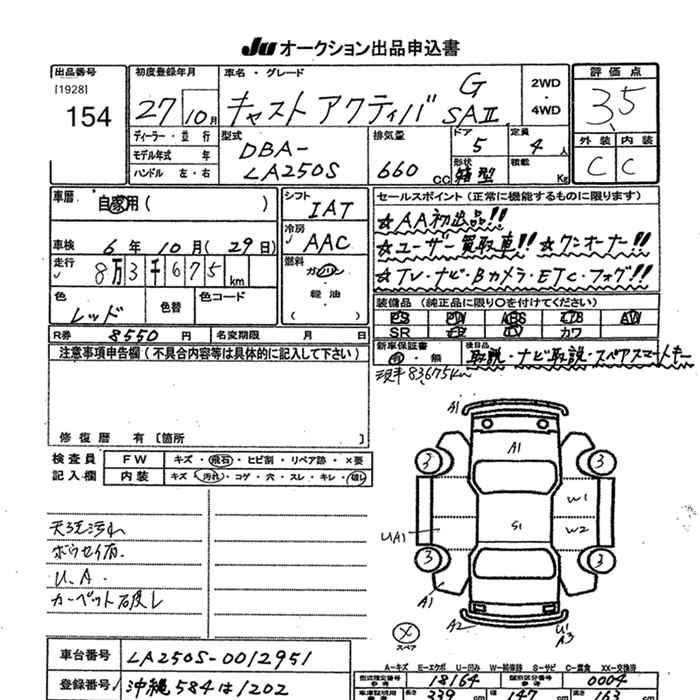 Ju オークション出品申込書
出品番号
[1928]
154
初度登録年月
27 10月
車名・グレード
キャスト アクティバ G SAⅡ
2WD
・
4WD
評価点
3.5
外装 内装
C C
ディーラー・並行
モデル年式 年
ハンドル 左・右
型式
DBA-
LA250S
排気量
660 CC
ドア
5
定員
4人
形状
箱型
積載
Kg
車歴
自家用( )
車検 6年 10月(29日)
走行
8万3千675km
色
レッド
色替
色コード
シフト
IAT
冷房
AAC
燃料
ガソリン
・
軽油
( )
セールスポイント(正常に機能するものに限ります)
☆AA初出品!!
☆ユーザー買取車!! ☆ワンオーナー!!
☆TV・ナビ・Bカメラ・ETC・フォグ!!
装備品(純正品に限り○を付けてください)
PS PW ABS エアB AW
SR カワ
R券 8550円 名変期限 月 日
新車保証書
有・無
後日品
取説・ナビ取説・スペアスマートキー
注意事項申告欄(不具合内容等は具体的に記入して下さい)
現車83,675km
修復歴 有〔箇所 〕
検査員
記入欄
FW キズ・飛石・ヒビ割・リペア跡・×要
内装 キズ・汚れ・コゲ・穴・スレ・キレ・破レ
天張汚れ
ボウセイ有.
U.A
カーペット破レ
A1
A1
3 3
W1
S1 W2
UA1
3 3
A1
A2
U1
A3
×
スペア
A-キズ E-エクボ U-凹み W-補修跡 S-サビ C-腐食 XX-交換済
車台番号 LA250S-0012951
登録番号 沖縄584は1202
型式指定番号
参考
18164
類別区分番号
参考
0004
車庫証明用
参考
長さ 339cm
幅 147cm
高さ 163cm